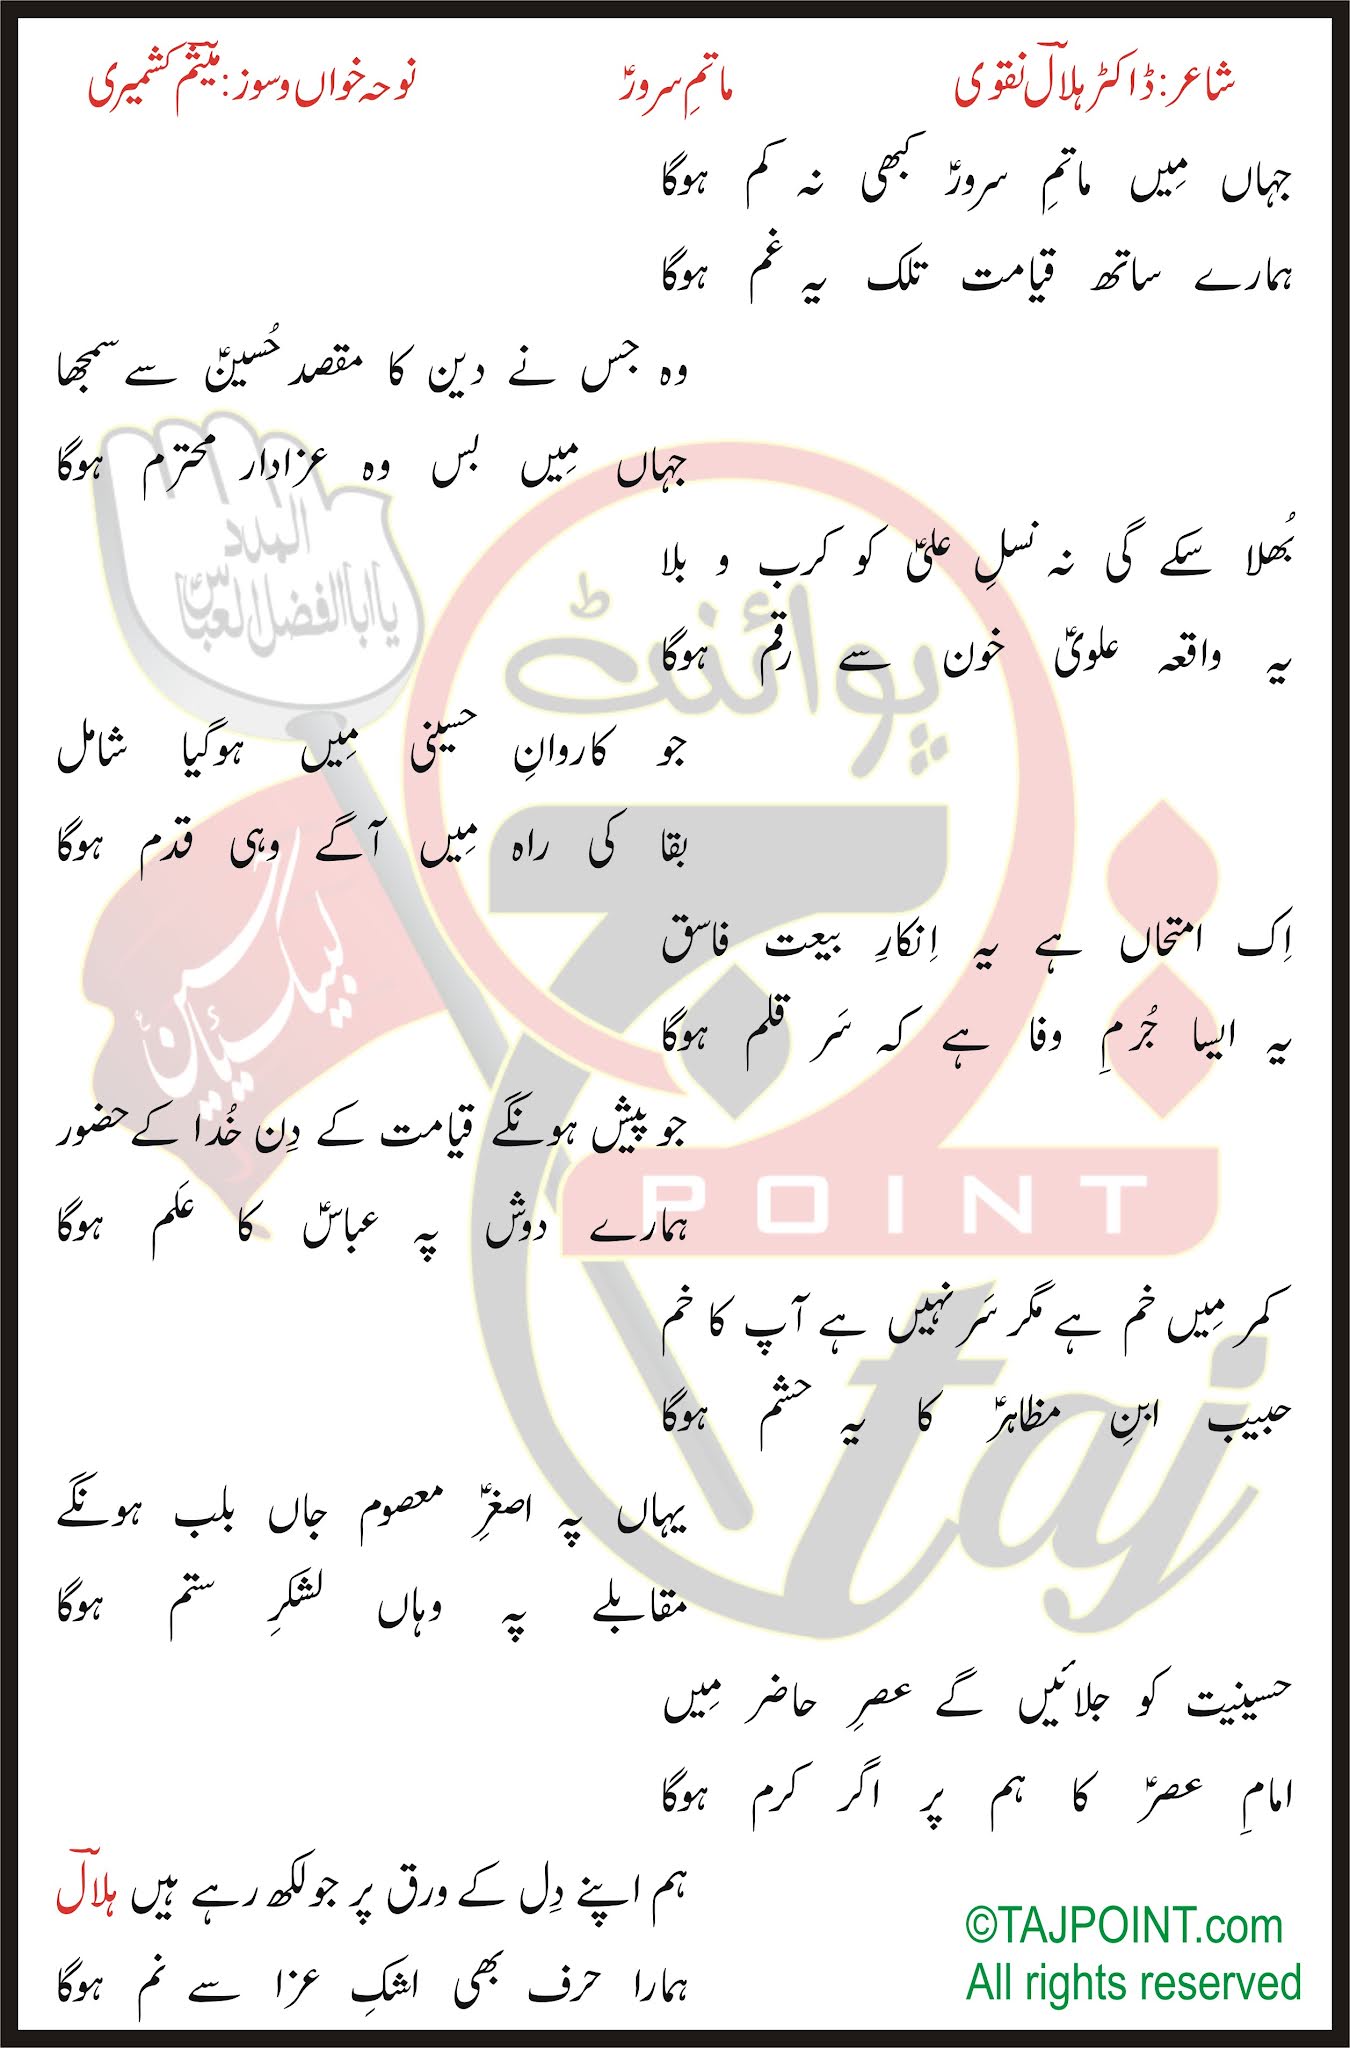 شاعر: ڈاکٹر ہلالؔ نقوی ماتمِ سرورؑ نوحہ خواں و سوز: میثمؔ کشمیری
جہاں مِیں ماتمِ سرورؑ کبھی نہ کم ہوگا
ہمارے ساتھ قیامت تلک یہ غم ہوگا
وہ جس نے دین کا مقصد حُسینؑ سے سمجھا
جہاں مِیں بس وہ عزادار محترم ہوگا
بُھلا سکے گی نہ نسلِ علیؑ کو کرب و بلا
یہ واقعہ علویؑ خون سے رقم ہوگا
جو کاروانِ حسینی مِیں ہوگیا شامل
بقا کی راہ مِیں آگے وہی قدم ہوگا
اِک امتحاں ہے یہ اِنکارِ بیعت فاسق
یہ ایسا جُرمِ وفا ہے کہ سَر قلم ہوگا
جو پیش ہونگے قیامت کے دِن خُدا کے حضور
ہمارے دوش پہ عباسؑ کا عَلم ہوگا
کمر مِیں خم ہے مگر سَر نہیں ہے آپ کا خم
حبیب ابنِ مظاہرؑ کا یہ حشم ہوگا
یہاں پہ اصغرِؑ معصوم جاں بلب ہونگے
مقابلے پہ وہاں لشکرِ ستم ہوگا
حسینیت کو جلائیں گے عصرِ حاضر مِیں
امامِ عصرؑ کا ہم پر اگر کرم ہوگا
ہم اپنے دِل کے ورق پر جو لکھ رہے ہیں ہلالؔ
ہمارا حرف بھی اشکِ عزا سے نم ہوگا
©TAJPOINT.com
All rights reserved
المدد
یا ابا الفضل العباسؑ
لبیک یا حسینؑ
پوائنٹ
تاج
POINT
taj